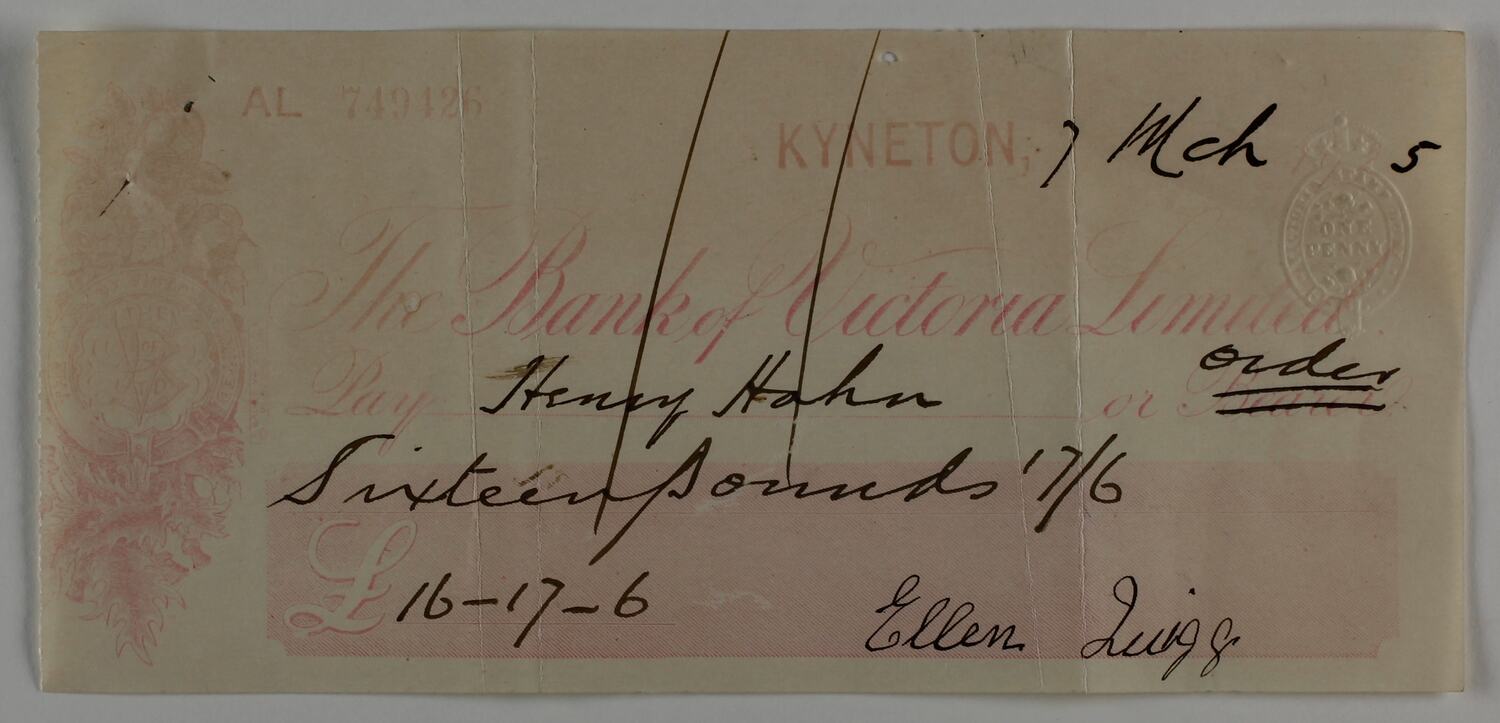 AL 749426
KYNETON, 7 Mch 5
ONE
PENNY
The Bank of Victoria Limited.
Pay Henry Hahn or Bearer order
Sixteen pounds 17/6
£ 16-17-6
Ellen Quigg